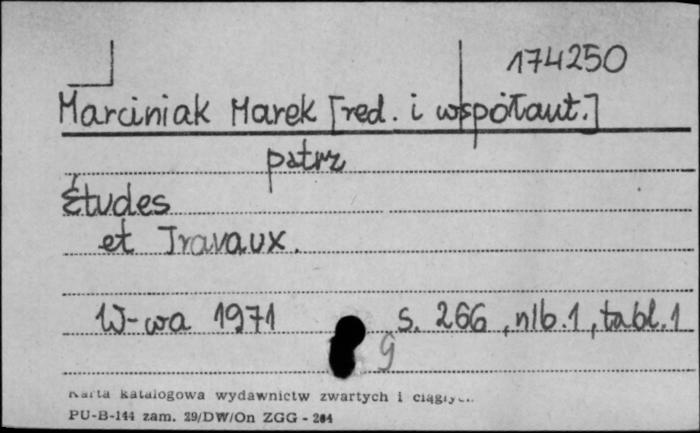 174250
Marciniak Marek [red. i współaut.]
patrz
Études
et Travaux.
W-wa 1971 s. 266, nlb. 1, tabl. 1
g
Karta katalogowa wydawnictw zwartych i
PU-B-144 zam. 29/DW/On ZGG - 204